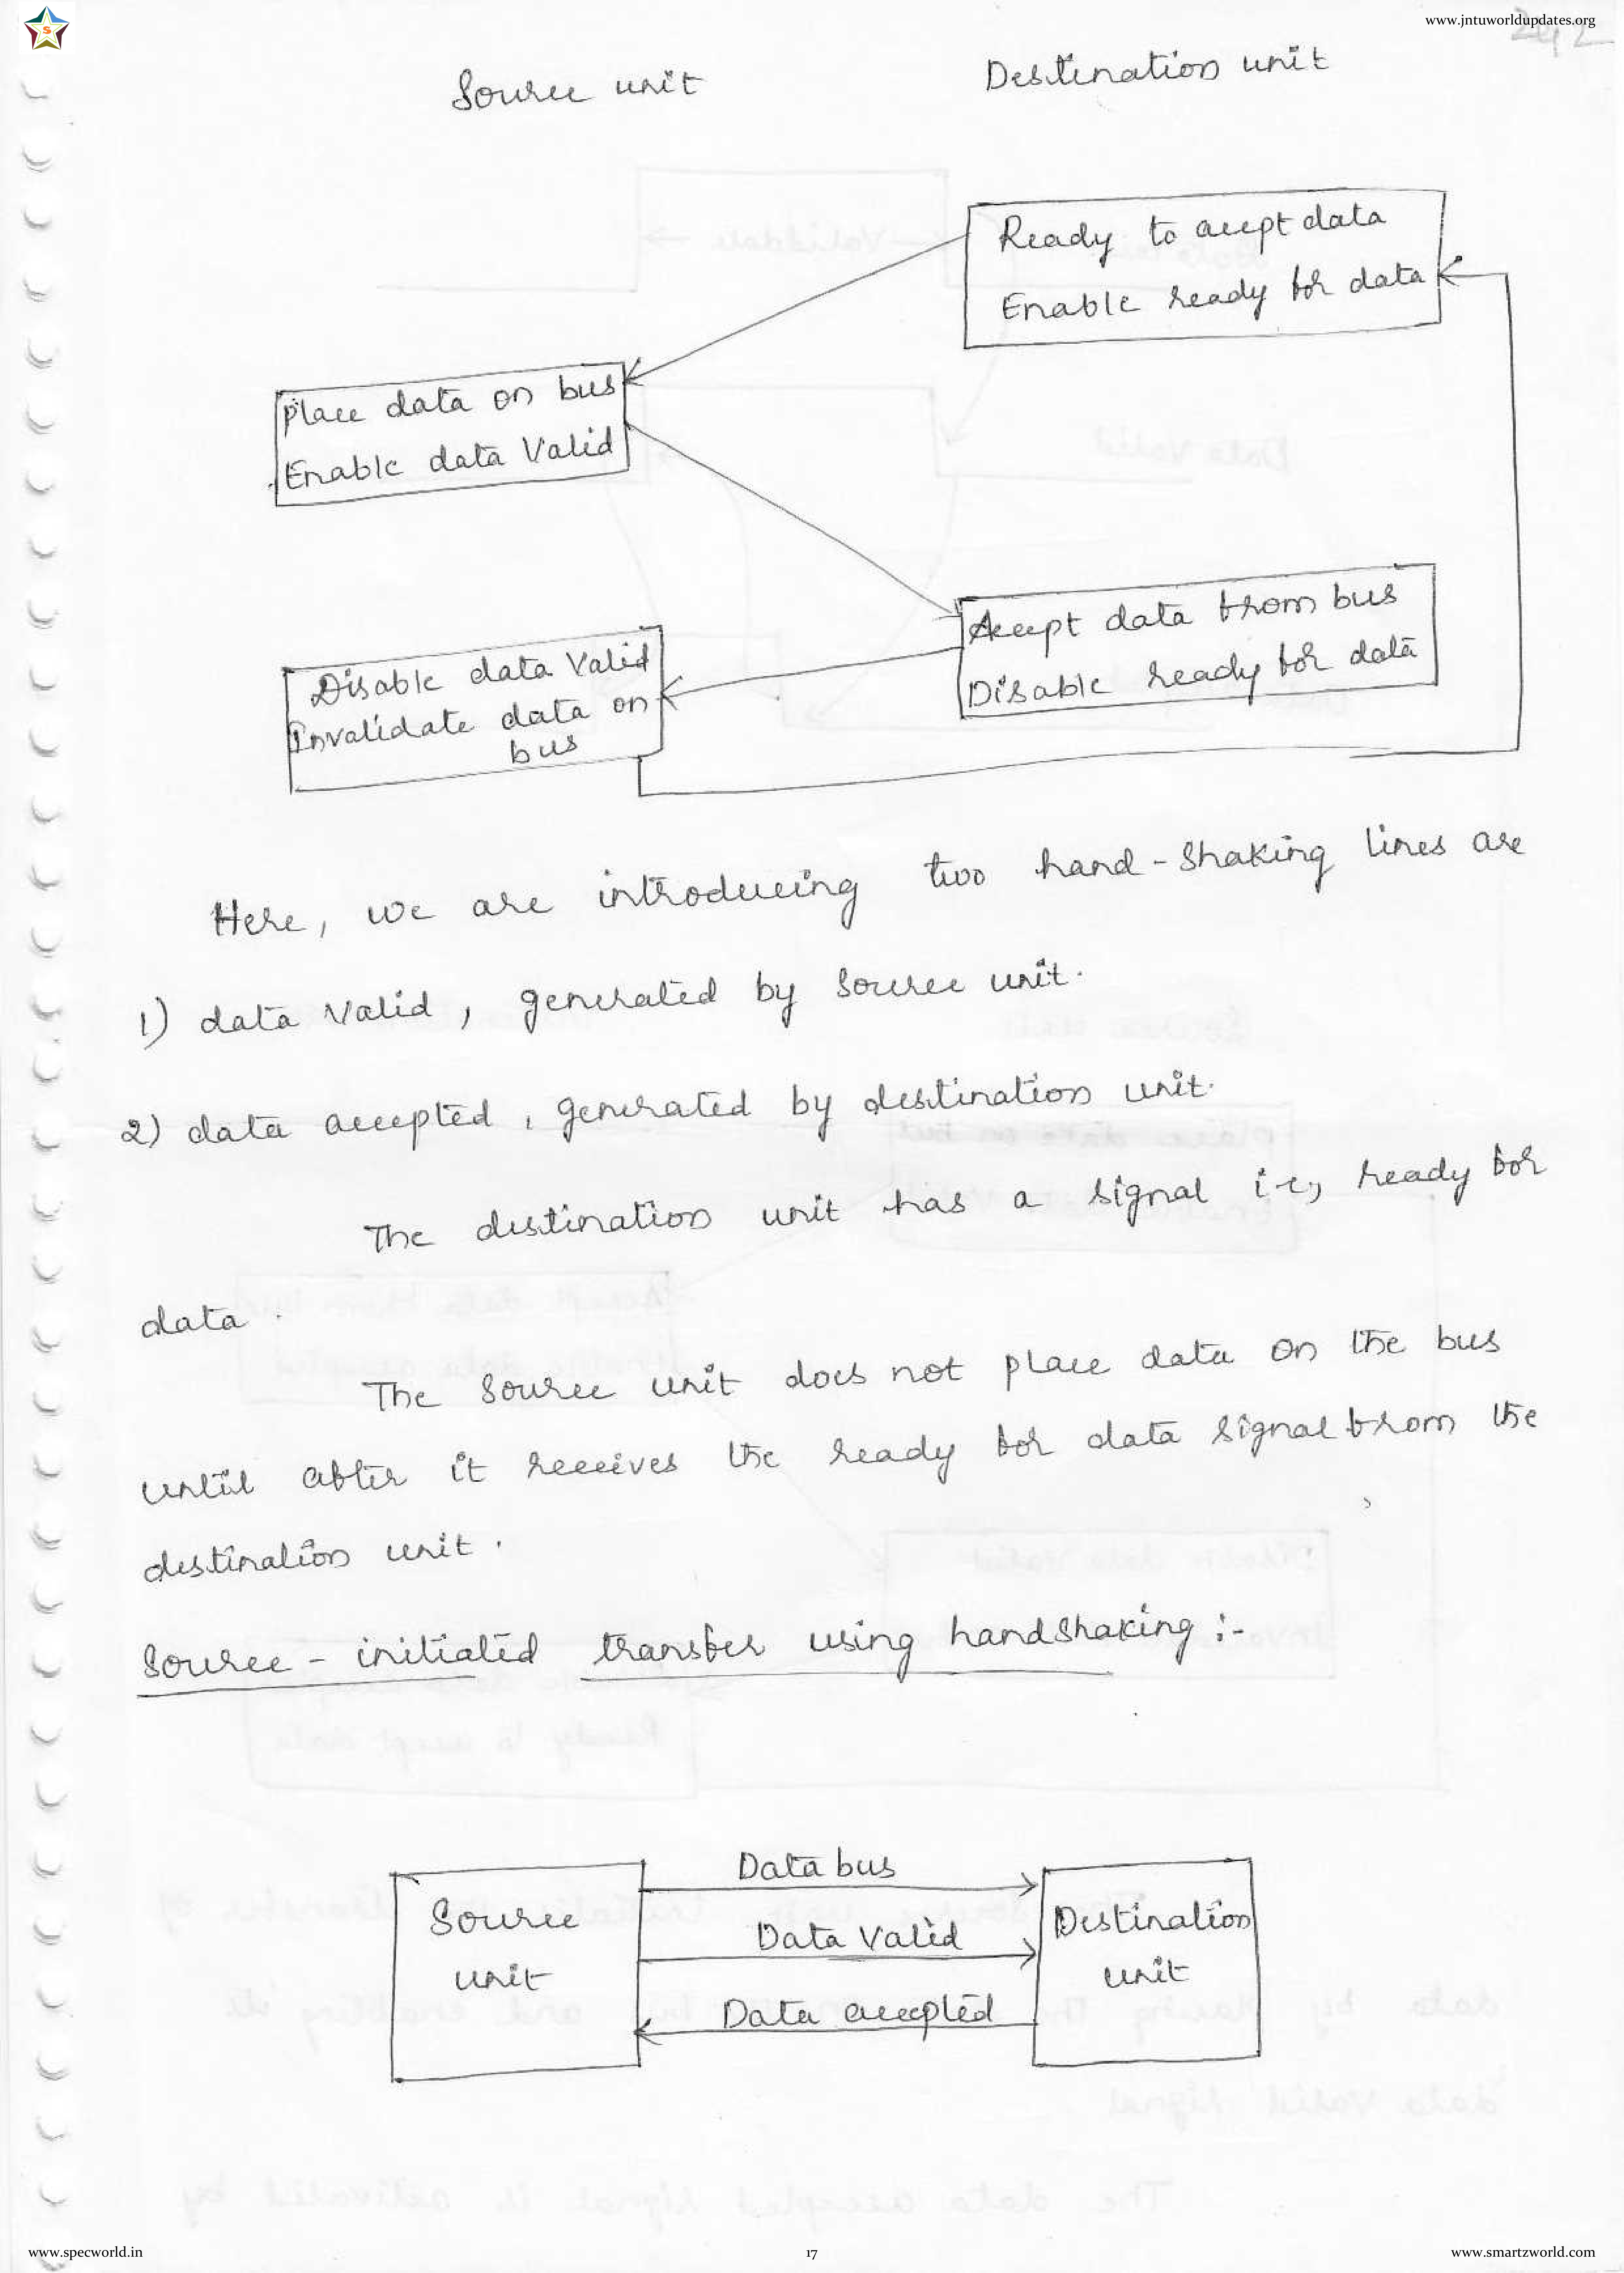 www.jntuworldupdates.org
242
Source unit
Destination unit
Ready to acept data
Enable ready for data
Place data on bus
Enable data Valid
Accept data from bus
Disable ready for data
Disable data Valid
Invalidate data on
bus
Here, we are introducing two hand-shaking lines are
1) data valid, generated by source unit.
2) data accepted, generated by destination unit.
The destination unit has a signal i.e, ready for
data.
The source unit does not place data on the bus
until after it receives the ready for data signal from the
destination unit.
Source - initiated transfer using handshaking :-
Data bus
Source
unit
Data Valid
Destination
unit
Data accepted
www.specworld.in
17
www.smartzworld.com